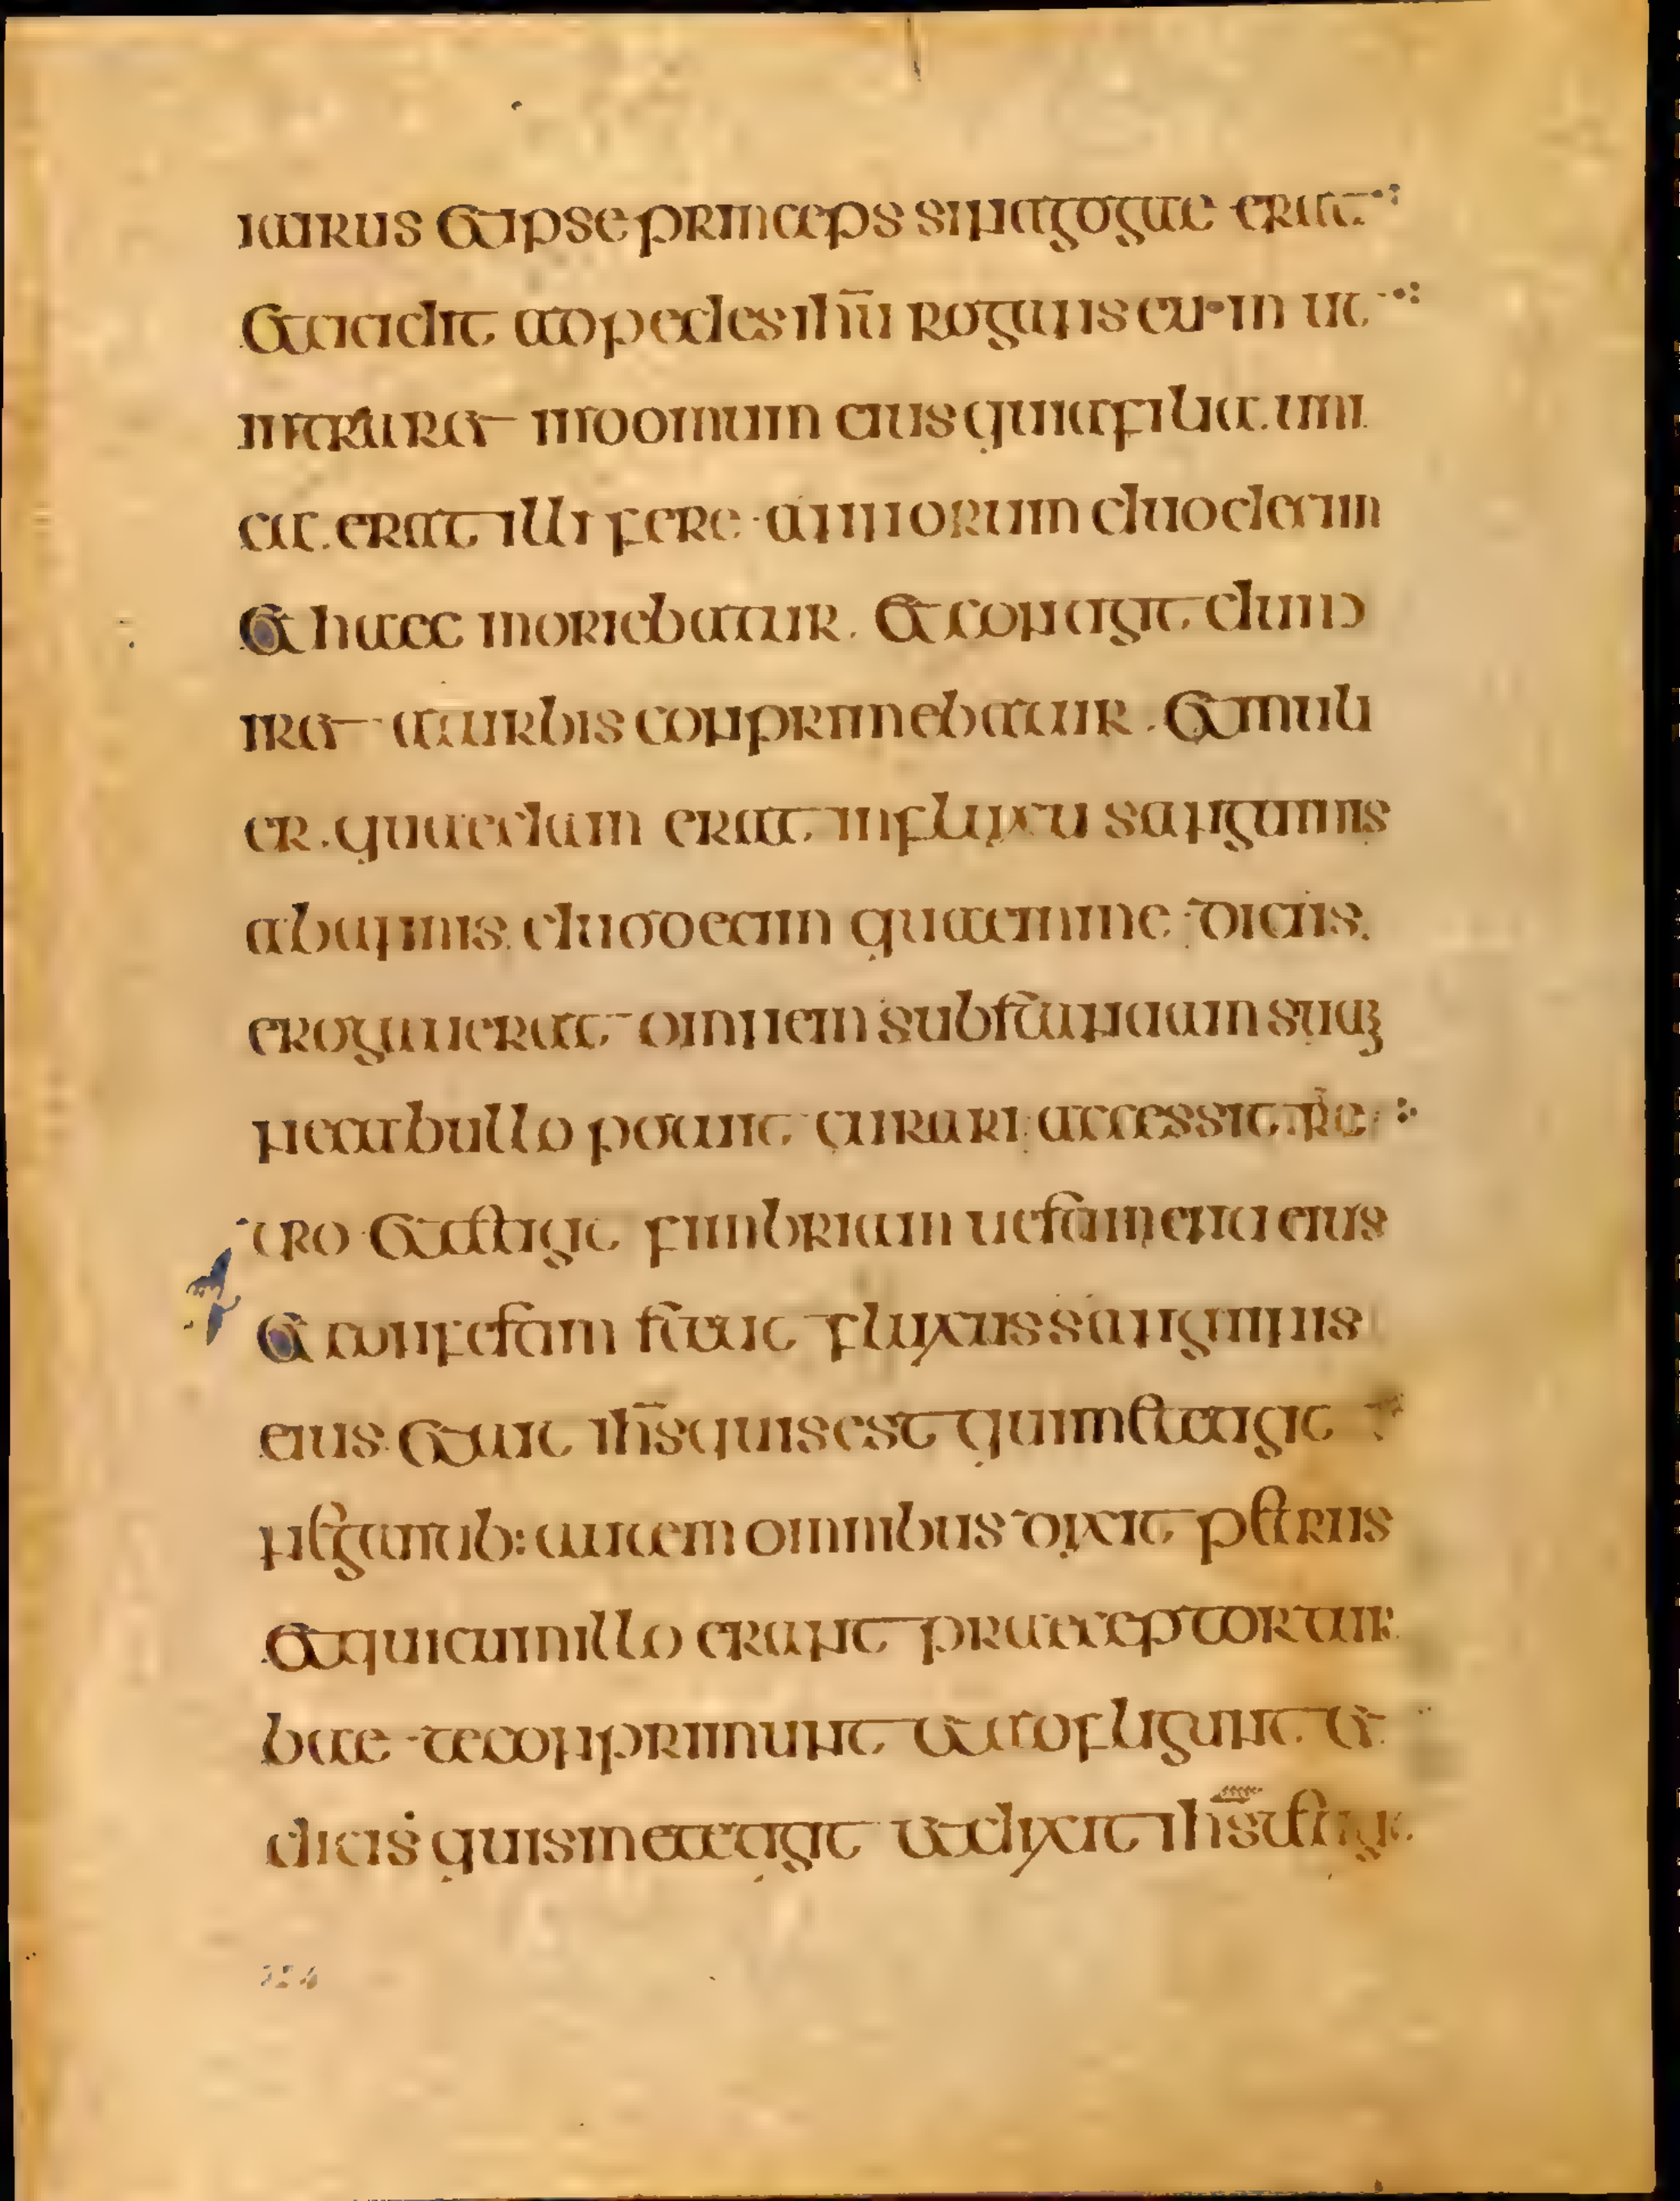 iairus et ipse princeps sinagogae erat
et cecidit ad pedes ihū rogans eum ut
intraret in domum eius quia filia uni
ca erat illi fere annorum duodecim
et haec moriebatur. et contigit dum
iret a turbis conprimebatur. et muli
er. quaedam erat in fluxu sanguinis
ab annis duodecim quae in medicis
erogauerat omnem substantiam suam
nec ab ullo potuit curari accessit re
tro et tetigit fimbriam uestimenti eius
et confestim stetit fluxus sanguinis
eius et ait ihs̄ quis est qui me tetigit
negantib: autem omnibus dixit petrus
et qui cum illo erant praeceptor tur
bae te conprimunt et adfligunt et
dicis quis me tetigit et dixit ihs̄ tetigit